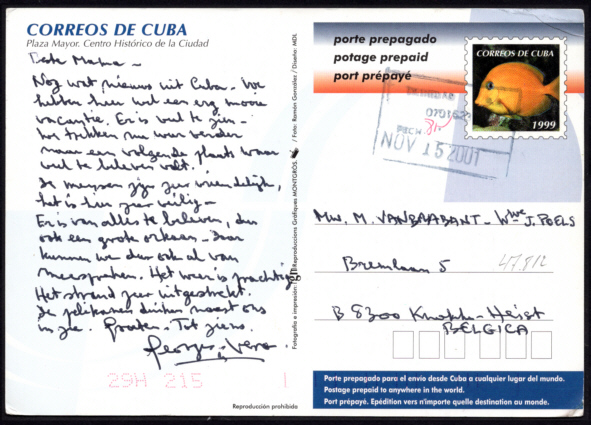 CORREOS DE CUBA
Plaza Mayor. Centro Histórico de la Ciudad
Beste Mama -
Nog wat nieuws uit Cuba - We
hebben hier wel een erg mooie
vacantie. Er is veel te zien -
We trekken nu weer verder
naar een volgende plaats waar
veel te beleven valt.
De mensen zijn zeer vriendelijk,
het is hier zeer veilig -
Er is van alles te beleven, dus
ook een grote orkaan - Daar
kunnen we dus ook al van
meespreken. Het weer is prachtig
Het strand zeer uitgestrekt.
De pelikanen duiken naast ons
in zee. Groeten - Tot ziens.
Georges - Vera
29H 215
Reproducción prohibida
Fotografía e impresión: Reproducciones Gráficas MONTGROS, / Foto: Ramón González / Diseño: MDL
porte prepagado
potage prepaid
port prépayé
CORREOS DE CUBA
1999
NOV 15 2001
MW. M. VANBRABANT - Wwe J. POELS
Bremlaan 5
47.812
B 8300 Knokke - Heist
BELGICA
Porte prepagado para el envío desde Cuba a cualquier lugar del mundo.
Postage prepaid to anywhere in the world.
Port prépayé. Epédition vers n'importe quelle destination au monde.